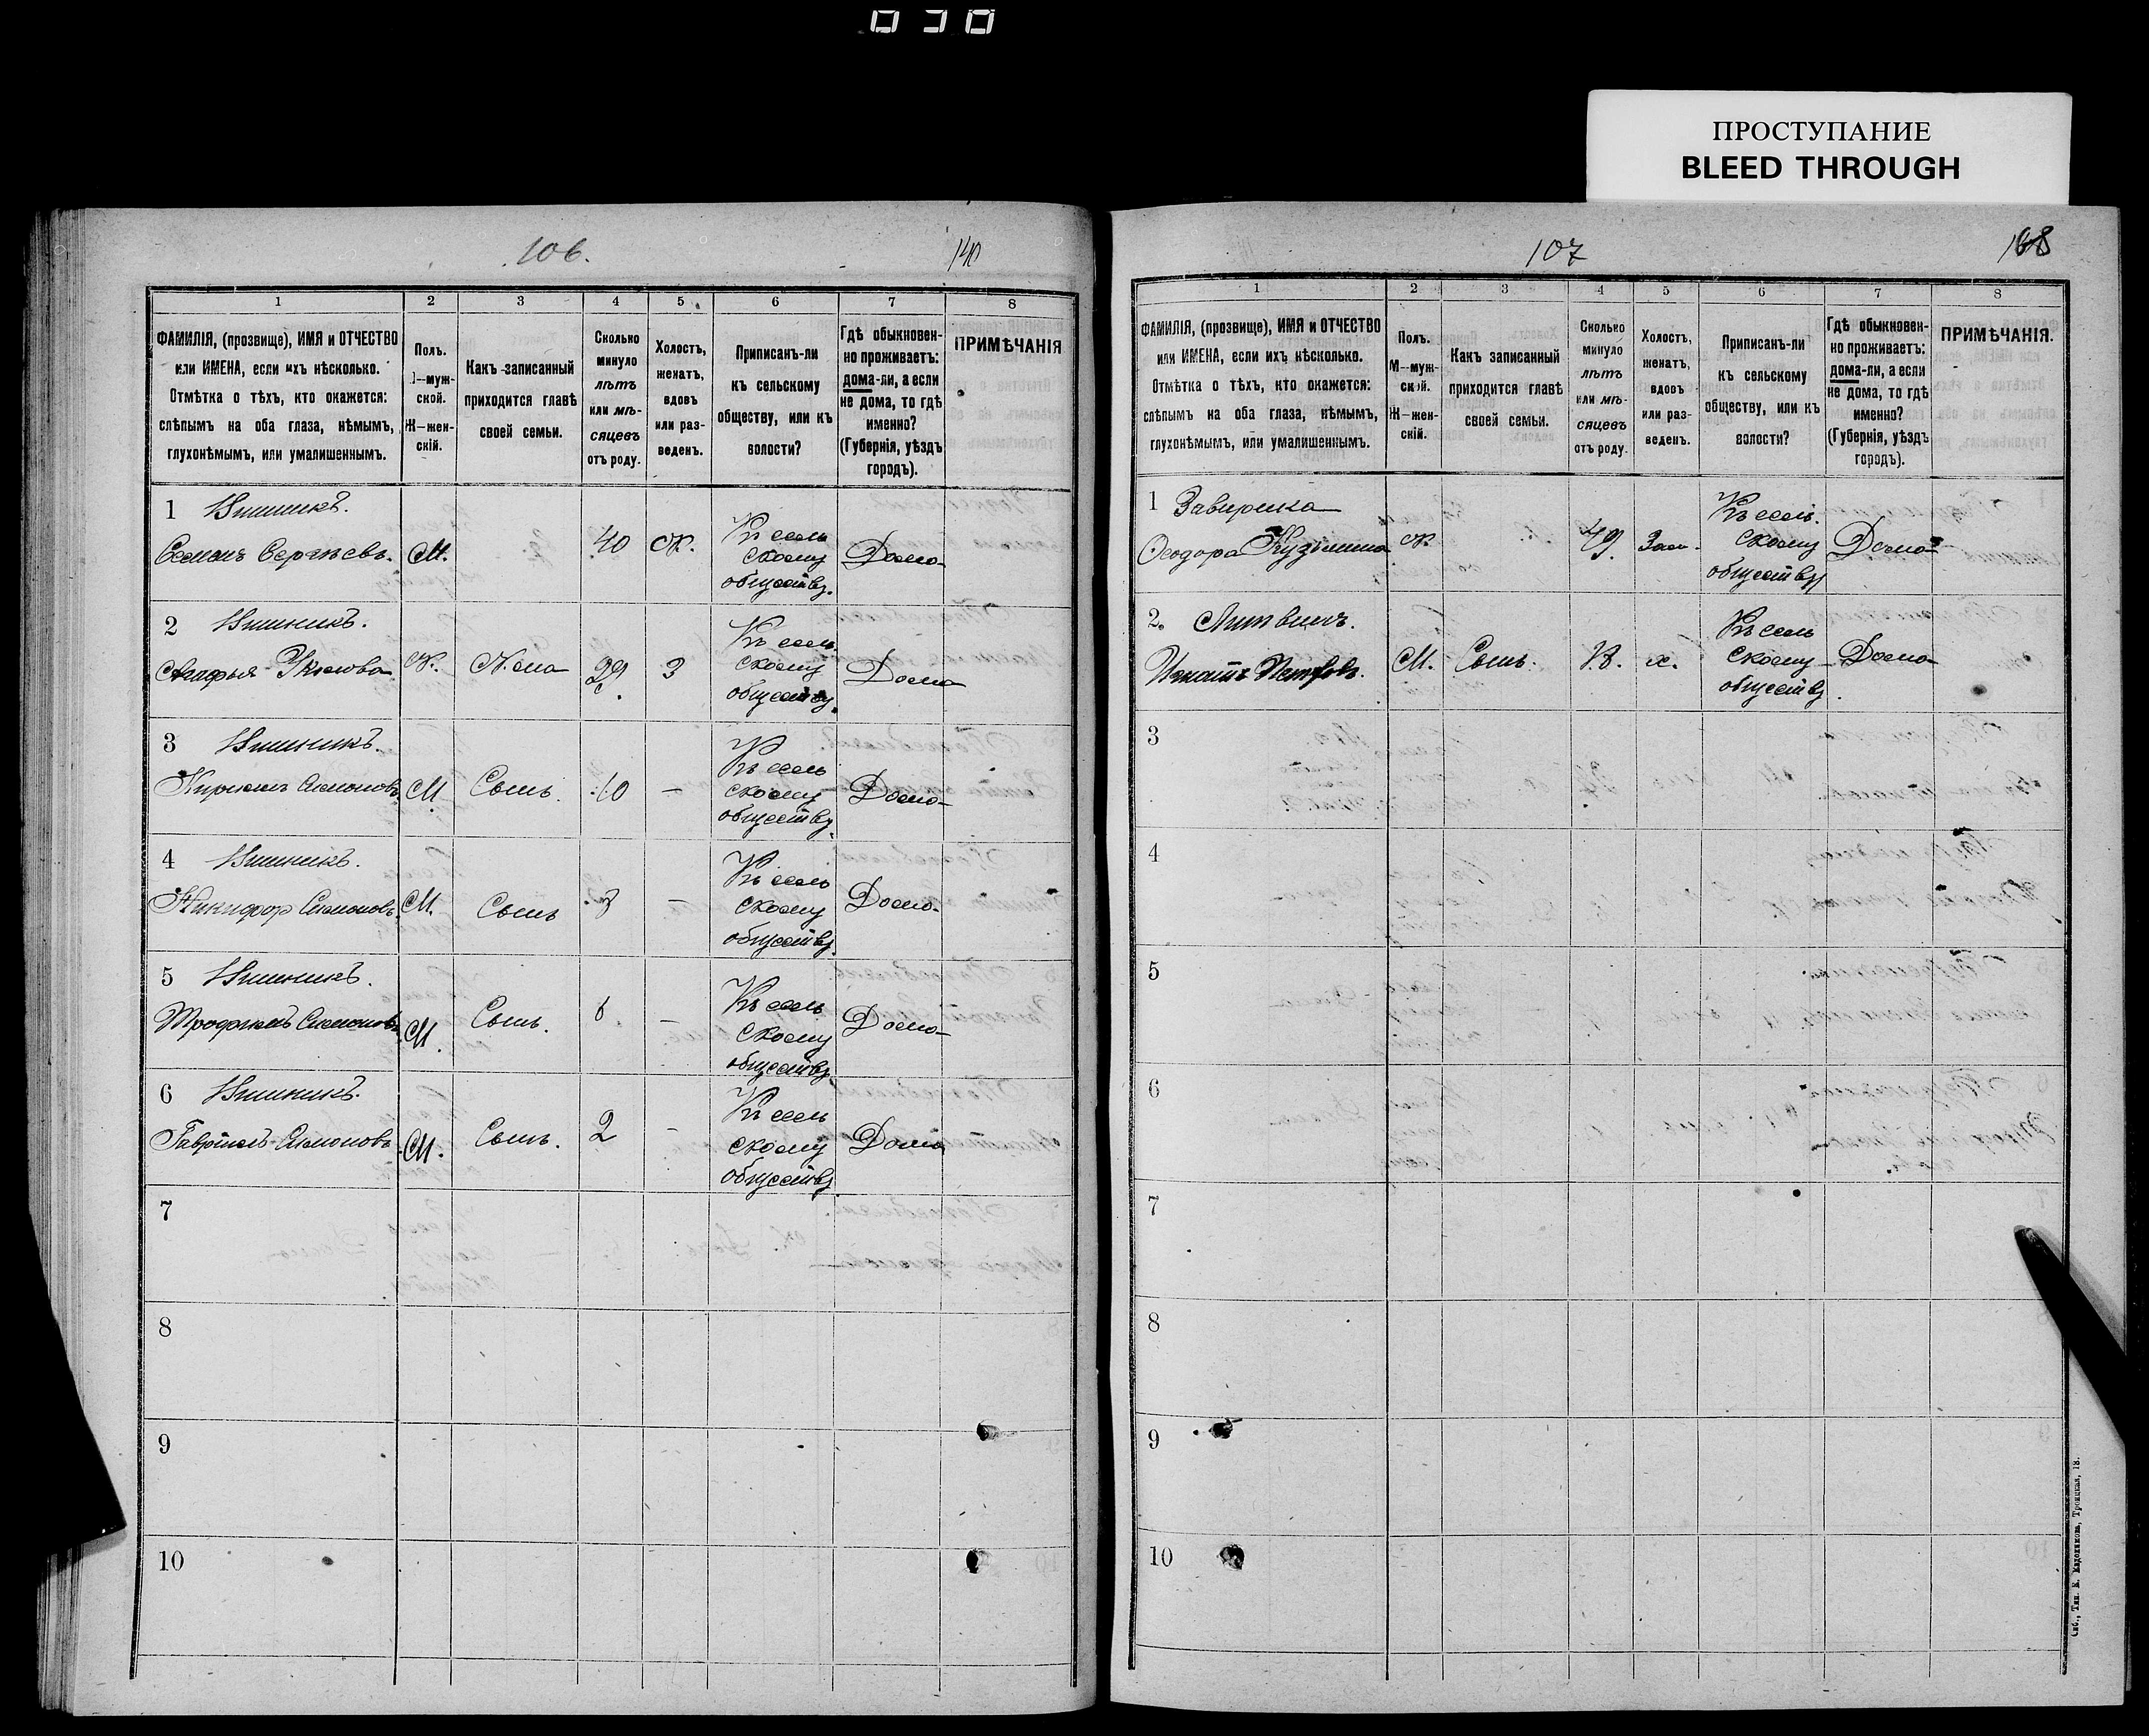 030
ПРОСТУПАНИЕ
BLEED THROUGH
106.
140
1 2 3 4 5 6 7 8
ФАМИЛІЯ, (прозвище), ИМЯ и ОТЧЕСТВО
или ИМЕНА, если ихъ нѣсколько.
Отмѣтка о тѣхъ, кто окажется:
слѣпымъ на оба глаза, нѣмымъ,
глухонѣмымъ, или умалишеннымъ.
Полъ.
М—муж-
ской.
Ж—жен-
скій.
Какъ записанный
приходится главѣ
своей семьи.
Сколько
минуло
лѣтъ
или мѣ-
сяцевъ
отъ роду.
Холостъ,
женатъ,
вдовъ
или раз-
веденъ.
Приписанъ-ли
къ сельскому
обществу, или къ
волости?
Гдѣ обыкновен-
но проживаетъ:
дома-ли, а если
не дома, то гдѣ
именно?
(Губернія, уѣздъ
городъ).
ПРИМѢЧАНІЯ
1
Семенъ Сергѣевъ. М. 40 Ж. Къ сель
скому
обществу. Дома
2
Агафья Жена 29. З Къ сель
скому
обществу. Дома
3
Кириллъ Симоновъ М Сынъ. 10 — Къ сель
скому
обществу. Дома
4
Никифоръ Симоновъ. М. Сынъ — Къ сель
скому
обществу. Дома
5
Трофимъ Симоновъ М. Сынъ. — Къ сель
скому
обществу. Дома
6
Гавріилъ Симоновъ М. Сынъ. 2 — Къ сель
скому
обществу Дома
7
8
9
10
107
1 2 3 4 5 6 7 8
ФАМИЛІЯ, (прозвище), ИМЯ и ОТЧЕСТВО
или ИМЕНА, если ихъ нѣсколько.
Отмѣтка о тѣхъ, кто окажется:
слѣпымъ на оба глаза, нѣмымъ,
глухонѣмымъ, или умалишеннымъ.
Полъ.
М—муж-
ской.
Ж—жен-
скій.
Какъ записанный
приходится главѣ
своей семьи.
Сколько
минуло
лѣтъ
или мѣ-
сяцевъ
отъ роду.
Холостъ,
женатъ,
вдовъ
или раз-
веденъ.
Приписанъ-ли
къ сельскому
обществу, или къ
волости?
Гдѣ обыкновен-
но проживаетъ:
дома-ли, а если
не дома, то гдѣ
именно?
(Губернія, уѣздъ
городъ).
ПРИМѢЧАНІЯ.
1
Ѳеодора Кузьмина Ж 49. Зам. Къ сель.
скому
обществу Дома
2. Литвинъ.
Игнатъ Петровъ. М. Сынъ. х. Къ сель
скому
обществу. Дома
3
4
5
6
7
8
9
10